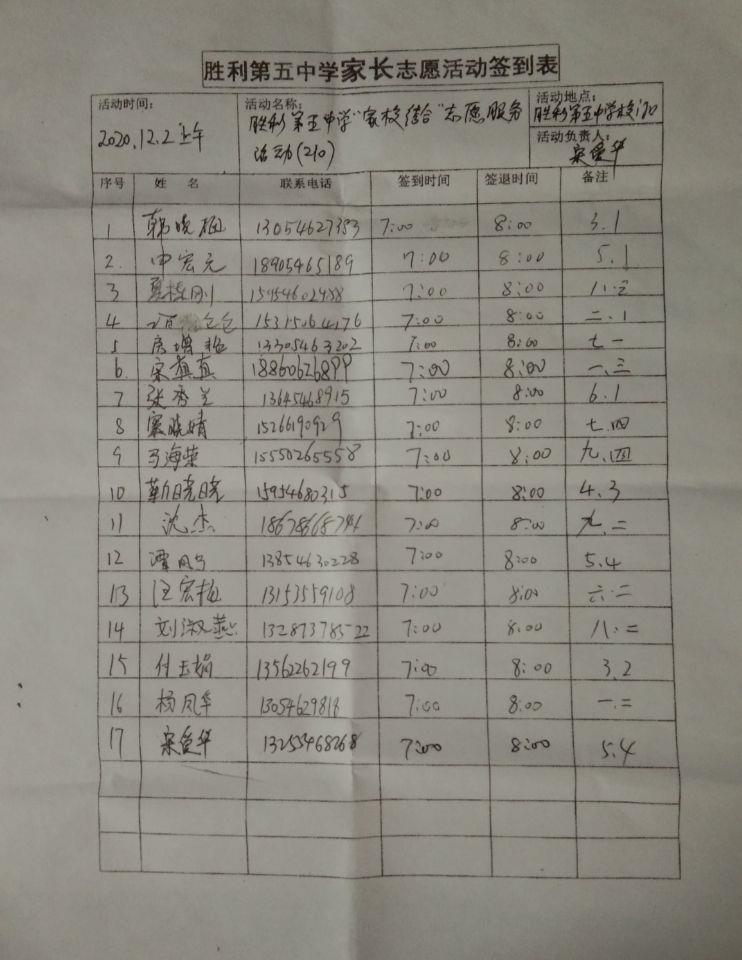 胜利第五中学家长志愿活动签到表
活动时间: 2020.12.2上午
活动名称: 胜利第五中学"家校结合"志愿服务
活动(210)
活动地点: 胜利第五中学校门口
活动负责人: 宋爱华
序号 姓 名 联系电话 签到时间 签退时间 备注
1 韩晓梅 13054627353 7:00 8:00 3.1
2. 申宏元 18905465189 7:00 8:00 5.1
3 夏 刚 15954602988 7:00 8:00 八.三
4 15315064176 7:00 8:00 二.1
5 房增 13305463202 7:00 8:00 七一
6. 宋真真 18860626899 7:00 8:00 一.三
7 张秀兰 13645468915 7:00 8:00 6.1
8 窦晓婧 1526690929 7:00 8:00 七.四
9 弓海荣 15550265558 7:00 8:00 九.四
10 靳晓晓 15954680315 7:00 8:00 4.3
11 沈杰 18678665744 7:00 8:00 九.二
12 谭风 13854630228 7:00 8:00 5.4
13 汪宏梅 13153559108 7:00 8:00 六.二
14 刘淑燕 13287378522 7:00 8:00 八.二
15 付玉娟 13562262199 7:00 8:00 3.2
16 杨凤华 13054629818 7:00 8:00 一.二
17 宋爱华 13255468268 7:00 8:00 5.4